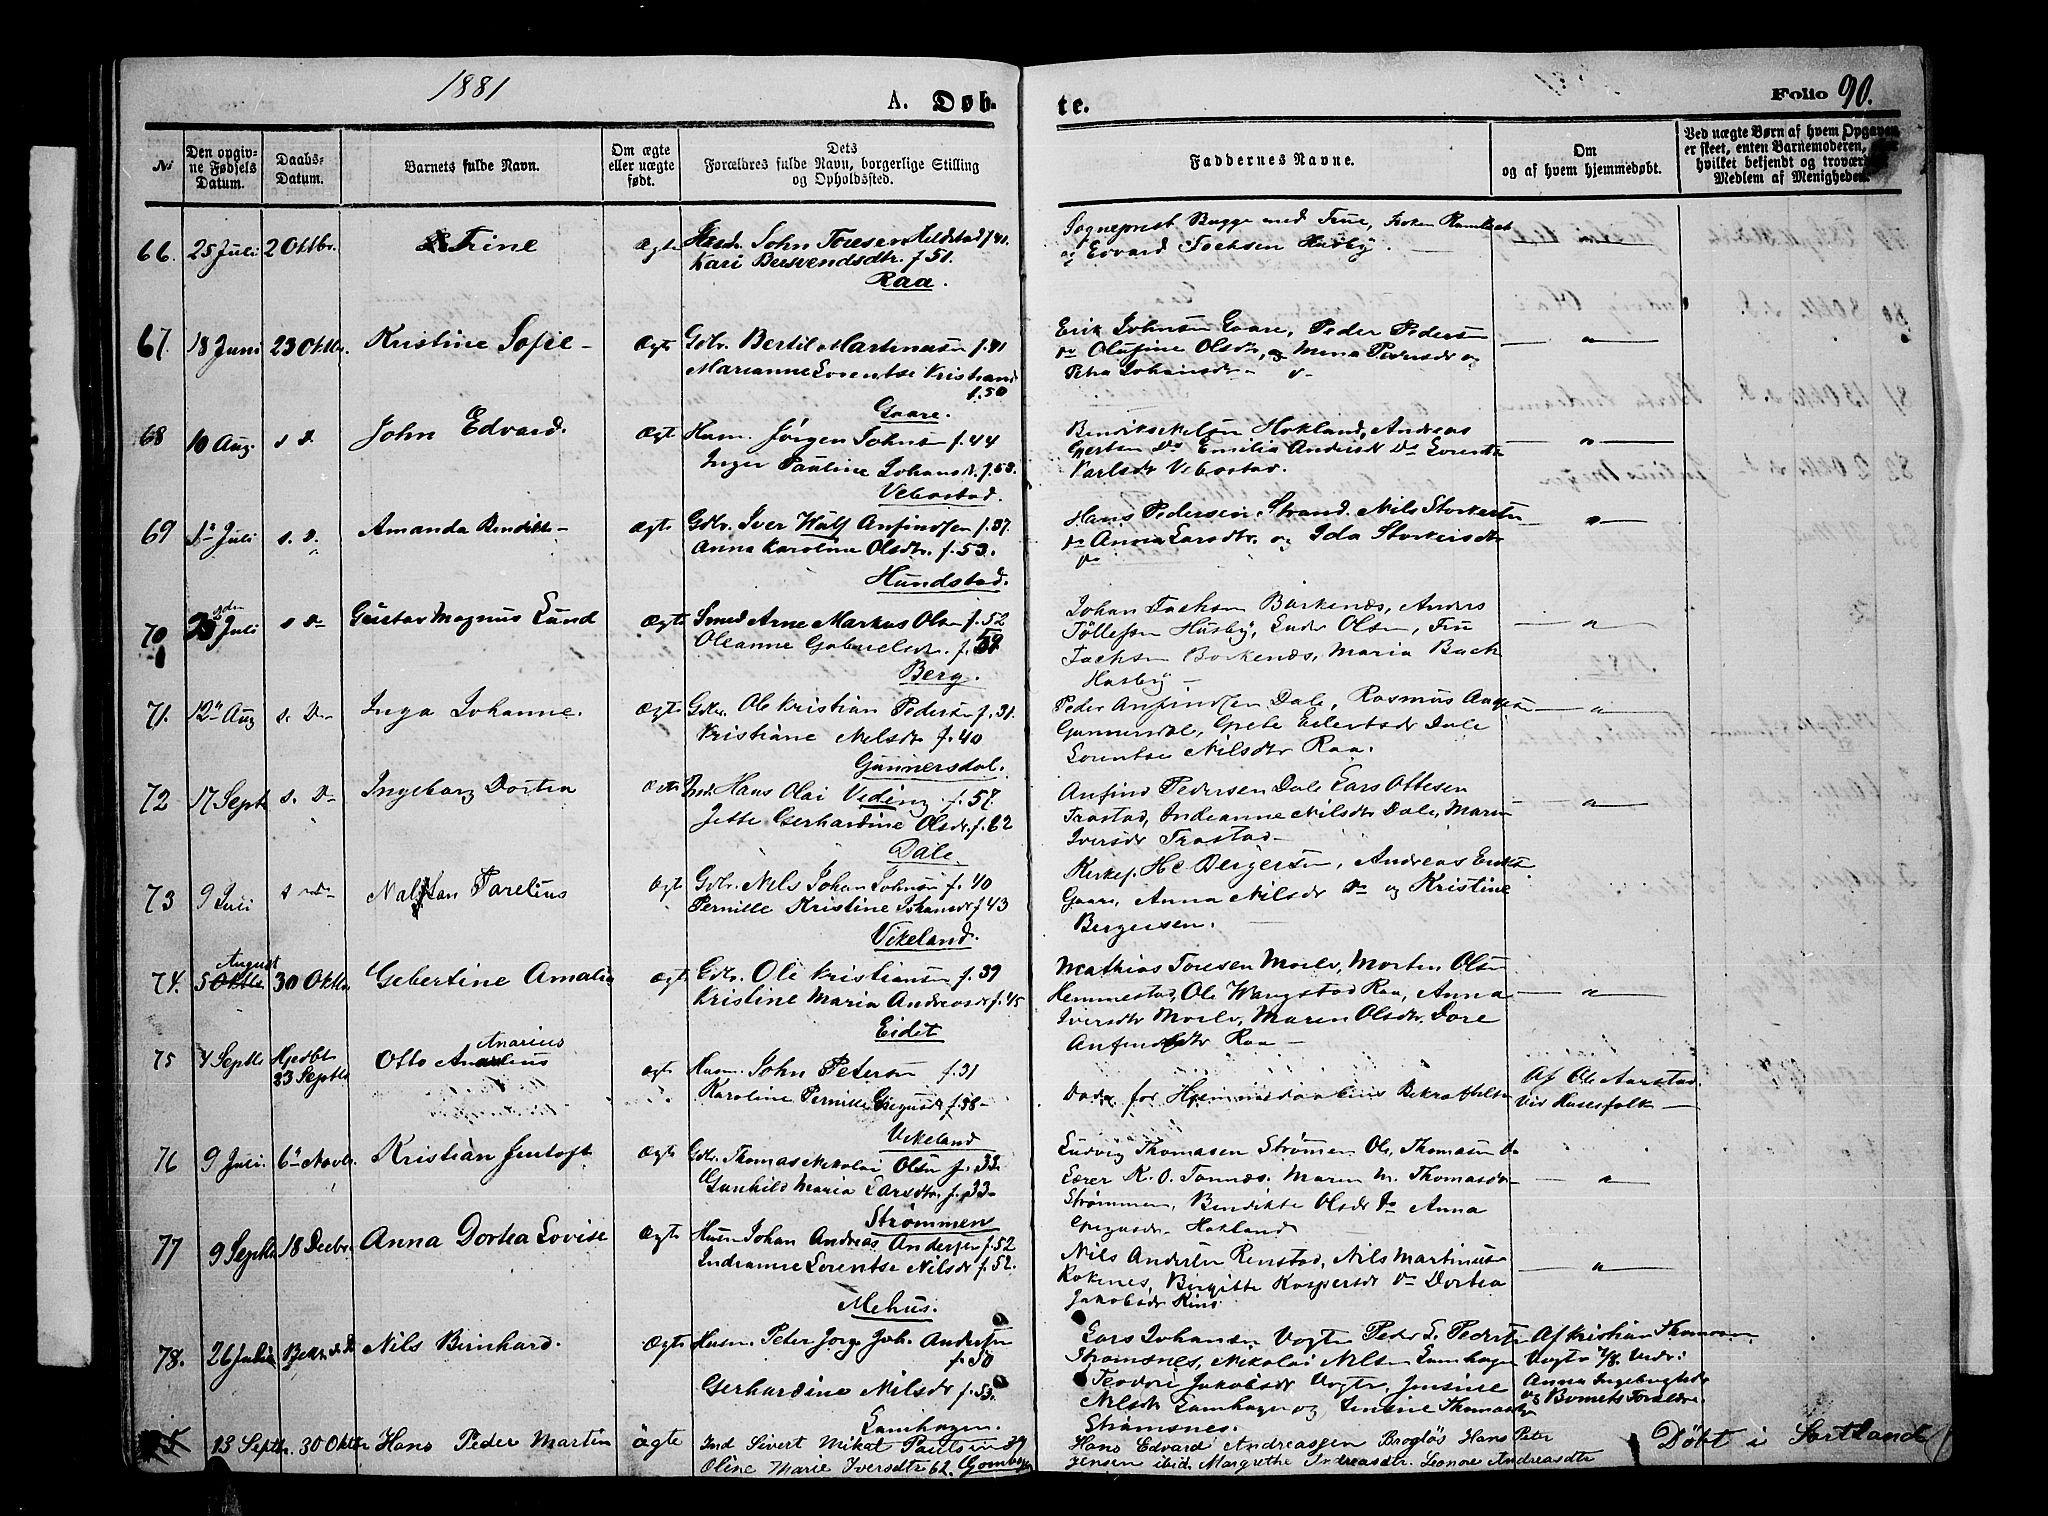 1881
A. Døb-
te.
Folio 90.
No
Den opgiv-
ne Fødsels
Datum.
Daabs-
Datum.
Barnets fulde Navn.
Om ægte
eller uægte
født.
Dets
Forældres fulde Navn, borgerlige Stilling
og Opholdssted.
Faddernes Navne.
Om
og af hvem hjemmedøbt.
Ved uægte Børn af hvem Opgaven
er skeet, enten Barnemoderen, eller
hvilket bekjendt og troværdigt
Medlem af Menigheden.
66. 25 Juli 2 Oktbr. Trine Ægte John Toresen Mildstad f 41.
Kari Bersvendsdtr. f 51.
Raa.
Sogneprest Bugge med Frue, Frøken
og Edvard Jachsen Husby.
67. 18 Juni 23 Oktbr. Kristine Sofie - Ægte Gdbr. Bertil Martinusen f. 41
Marianne Lorentse Kristiansd
f. 50
Gaare.
Erik Johnsen Gaare, Peder Pedersen
Do Olufine Olsdtr, og Mina Pedersdtr og
Petra Johansdtr - Do -
— " —
68 10 Aug. s. D. John Edvard. Ægte Husm. Jørgen Johnsen f. 44
Inger Pauline Johansdtr. f. 53.
Vebostad.
Hokland, Andreas
Gertsen Do Emilia Andersdtr Do Lorentse
Karlsdtr Vebostad.
— " —
69 1ste Juli s. D. Amanda Bendikte - Ægte Gdbr. Iver Wulf Anfindsen f. 37.
Anna Karolina Olsdtr. f. 53.
Hundstad.
Hans Pedersen Strand. Nils Storkersen
Do Anna Larsdtr. og Ida Storkersdtr
Do
— " —
70 Juli s D. Gustav Magnus Lund Ægte Smed Arne Markus Olsen f. 52
Oleanne Gabrielsdtr. f.
Berg.
Johan Jachsen Borkenæs, Anders
Tøllefsen Husby, Olsen, Fru
Jachsen Borkenæs, Maria Bach
Husby -
— " —
71. 12te Aug s. D. Inga Johanne. Ægte Gdbr. Ole Kristian Pedersen f. 31.
Kristiane Nilsdtr f. 40
Gunnersdal.
Peder Anfindsen Dale, Rasmus
Gunnersdal, Grete Eilertsdtr Dale
Lorentse Nilsdtr Raa.
— " —
72 17 Septb s. D. Ingeborg Dortea Ægte Ind. Hans Olai Veding f. 57.
Jette Gerhardine Olsdtr. f. 62
Dale.
Anfind Pedersen Dale Lars Ottesen
Trastad, Indianne Nilsdtr Dale, Maren
Iversdtr Trastad -
— " —
73 9 Juli s. D. Tarelius Ægte Gdbr. Nils Johan Johnsen f. 40
Pernille Kristine Johansdtr f 43
Vikeland.
Kirkes. H C Bergersen, Andreas Eriksen
Gaare, Anna Nilsdtr Do og Kristine
Bergersen.
74. August
5 Oktbr 30 Oktbr Gebertine Amalia Ægte Gdbr. Ole Kristiansen f. 39
Kristine Maria Andreasdtr f. 45
Eidet
Mathias Toresen Molv, Morten Olsen
Hemmestad, Ole Wangstad Raa, Anna
Iversdtr Molv, Maren Olsdtr, Dore
Anfindsdtr Raa -
— " —
75 4 Septbr Hjedbt
23 Septbr Otto Anarius Ægte Husm. John Petersen f. 31
Karoline Pernille f. 58 -
Vikeland
Døde før Hjemmedaabens Bekræftelse
Af Ole Aarstad
ved Husesfolk —
76 9 Juli. 6te Novbr. Kristian Ægte Gdbr. Thomas Nikolai Olsen f. 33.
Gunhild Maria Larsdtr. f. 33 -
Strømmen
Ludvig Thomasen Strømmen Ole Thomasen Do
Lærer K. O. Tonnæs. Maren M. Thomasdtr -
Strømmen, Bendikte Olsdtr Do Anna
Hokland -
— " —
77 9 Septbr 18 Decbr. Anna Dortea Lovise Ægte Husm Johan Andreas Andersen f. 52
Indianne Lorentse Nilsdtr f. 52.
Mehus.
Nils Andersen Renstad, Nils Martinus
Kokenes, Birgitte Kaspersdtr Do Dortea
Jakobsdtr
— " —
78. 26 Juli Bekr. s. D Nils Birnhard. Ægte Husm. Peter Jørg. Joh. Andersen
f. 50
Gerhardine Nilsdtr f. 53.
Lamhagen.
Lars Johansen Vogts Peder L. Pedersen
Strømsnes, Nikolai Nilsen Lamhagen
Teodore Jakobsdtr Vogts, Jensine
Nilsdtr Lamhagen og Jensine Thomasdtr
Strømsnes.
Af Kristian Thomasen
Vogts Vedr:
Anna Ingebrigtsdtr
og Barnets Forældre
13 Septbr. 30 Oktbr Hans Peder Martin ägte Ind Sivert Mikal Paulsen 39
Oline Marie Iversdtr 62.
Hans Edvard Andreassen Brogløs Hans Peter
Jensen ibid. Margrethe Andreasdtr. Leonore Andreasdtr
Döbt i Sortland